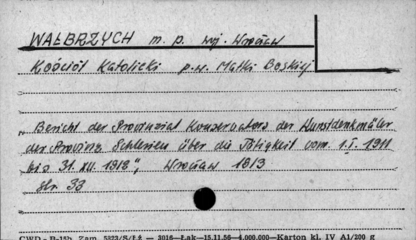 WAŁBRZYCH m. p. woj. Wrocław
Kościół Katolicki p.w. Matki Boskiej
„Bericht der Provinzial Konservators der Kunstdenkmäler
der Provinz Schlesien über die Tätigkeit vom. 1.I. 1911
bis 31. XII. 1912", Wrocław 1913
str. 33
CWD - B-15b Zam. 5323/S/Łż — 3016—Łak—15.11.56—4.000.000—Karton kl. IV A1/200 g